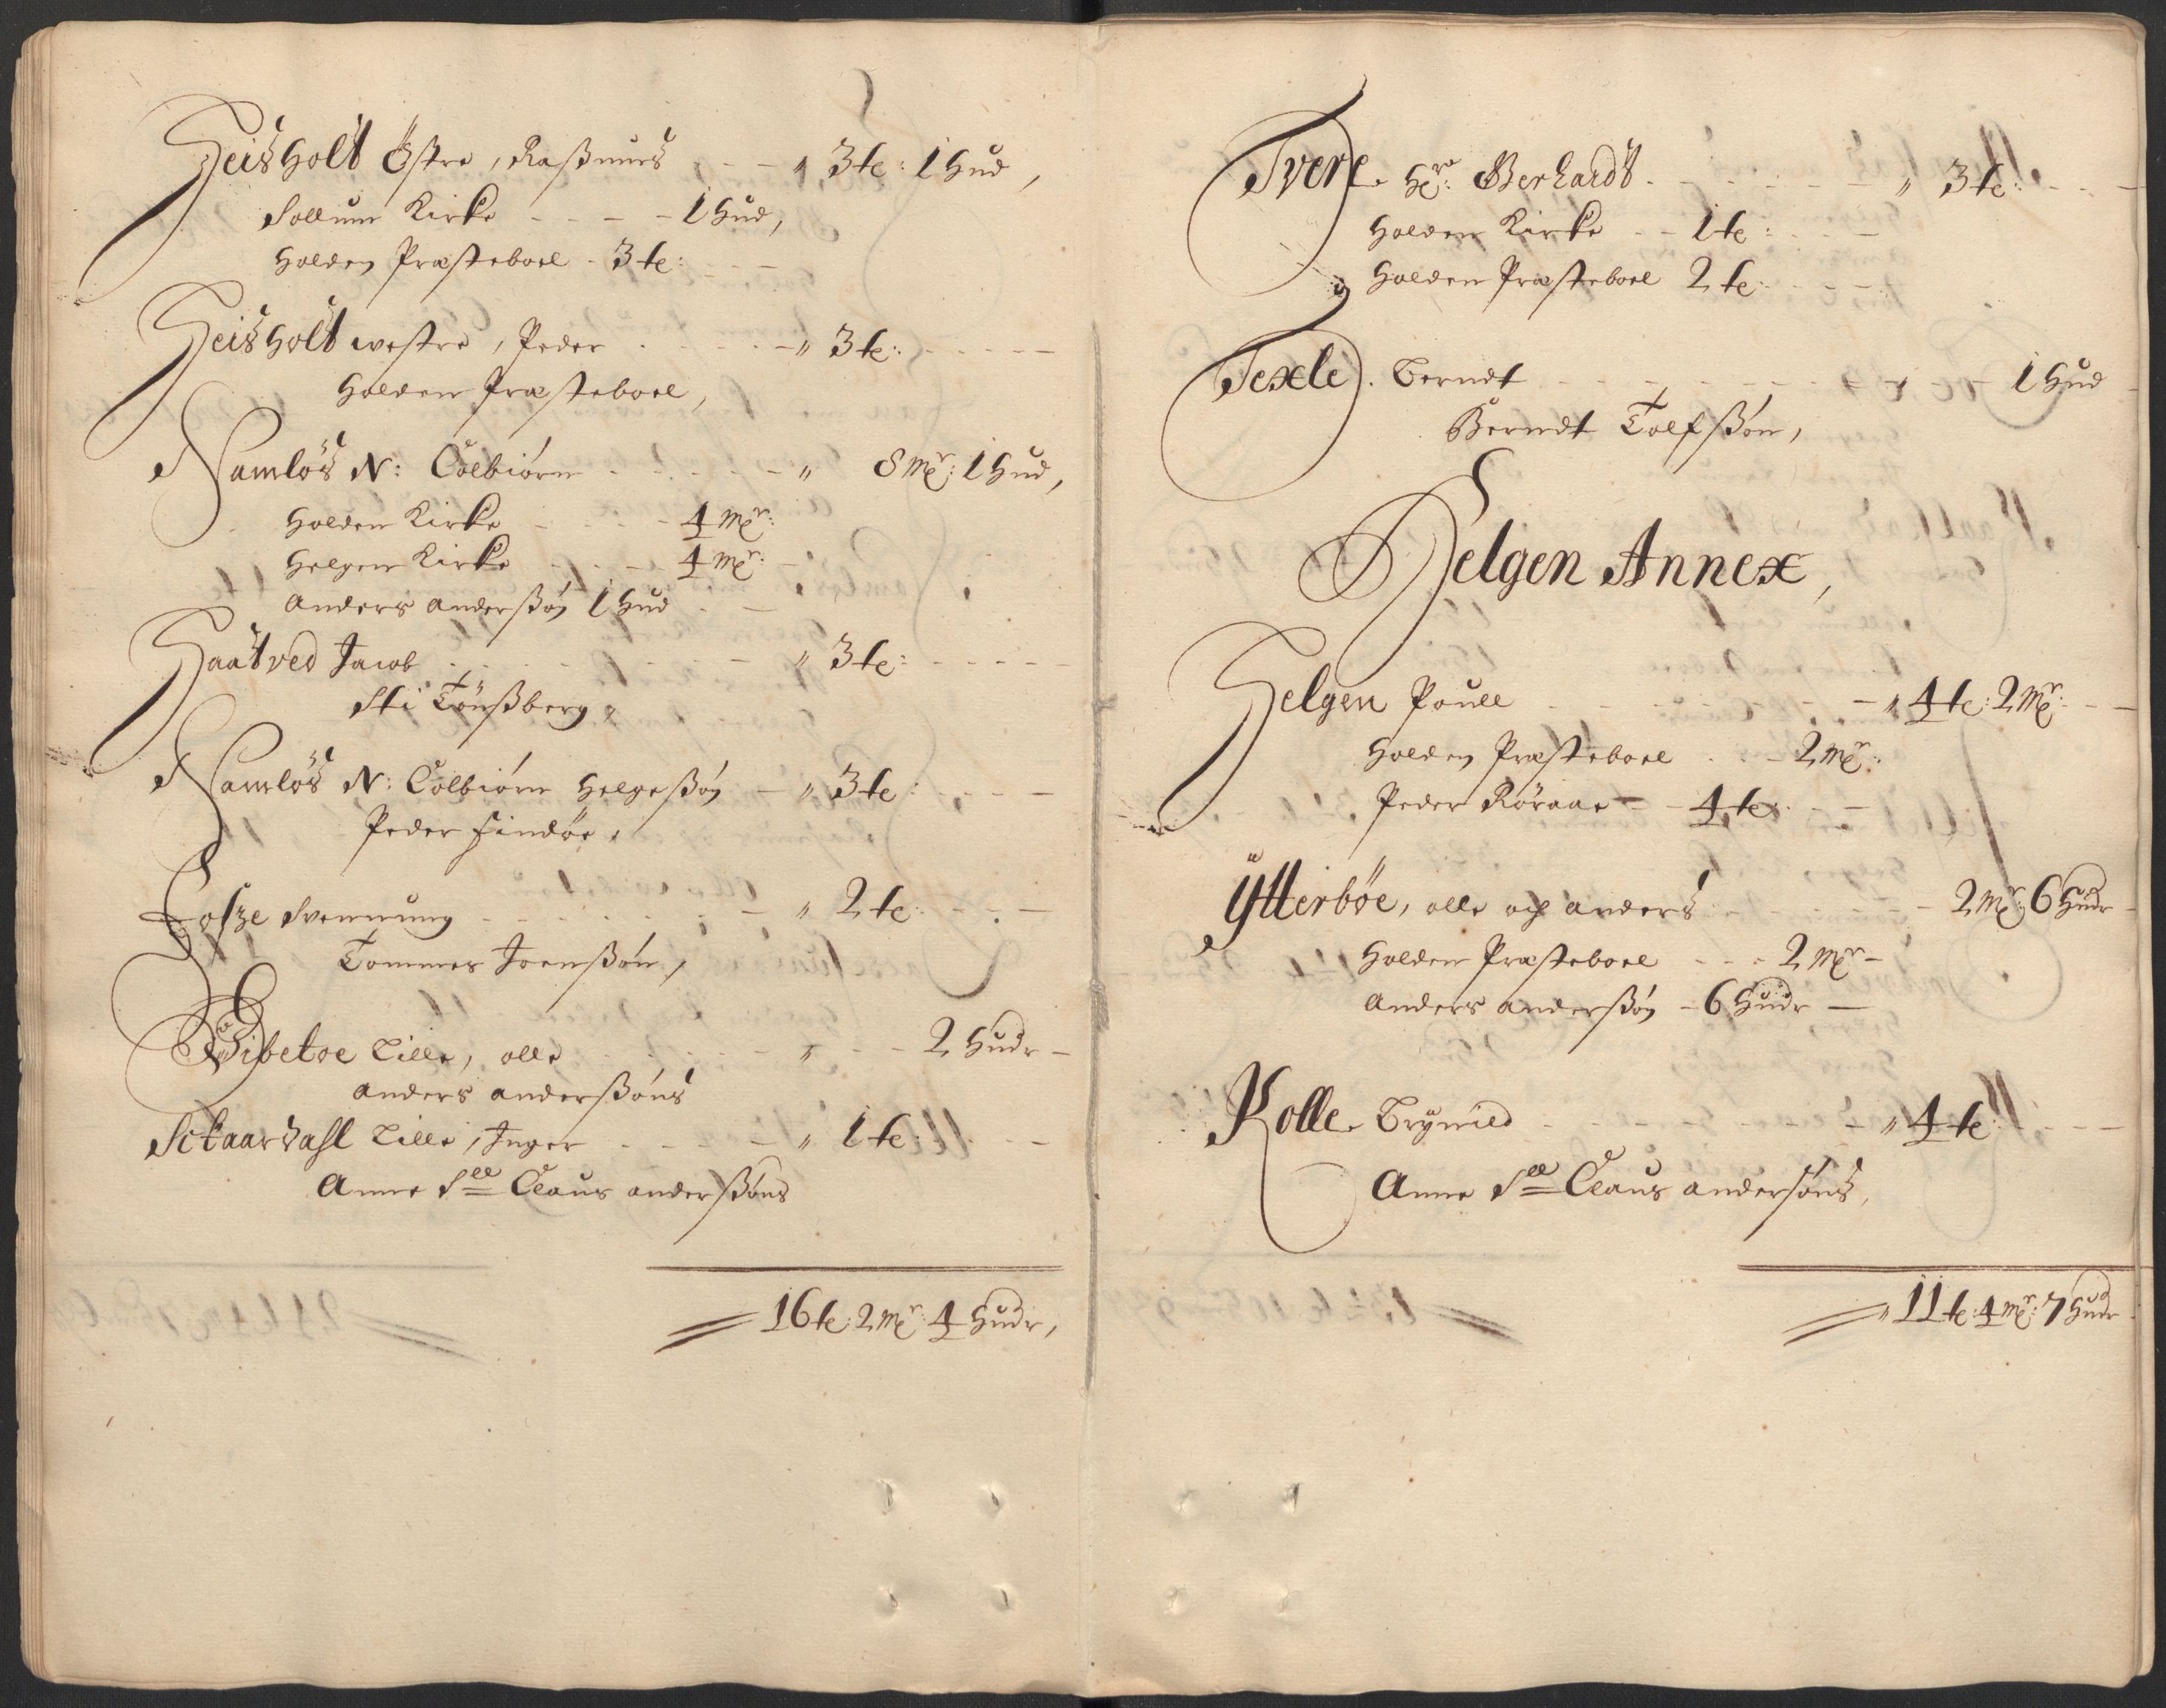 Geisholt Östre, Rasmus - - - " 3 te: 1 Hud,
Sollum Kirke - - - - 1 Hud,
Holden Præsteboel - 3 te:
Geisholt westre, Peder - - - - " 3 te: - - - -
Holden Præsteboel,
Namløs N: Colbiörn - - - - " 8 mr: 1 Hud,
Holden Kirke - - - - 4 mr:
Helgen Kirke - - - - 4 mr: -
Anders Anderßøn 1 Hud - -
Haatved Jacob - - - - - " 3 te: - - - -
Sti Tönßberg,
Namløs N: Colbiörn Helgeßøn - " 3 te: - - - -
Peder Findöe,
Fosze Svennung - - - - - " 2 te: - - -
Tommes Joenßøn,
Vibetoe Lille, olle - - - - " - - 2 Hudr -
Anders Anderßøns
Skaardahl Lille, Inger - - - " 1 te: - - -
Anne Sll Claus Anderßøns
16 te: 2 mr: 4 Hudr,
Tvere Hr: Berhardt - - - - - " 3 te: - - -
Holden Kirke - - 1 te: - - -
Holden Præsteboel 2 te: - - -
Texle. Berndt - - - - - - 1 Hud
Berndt Tolfßøn,
Helgen Annex,
Helgen Pouell - - - - - " 4 te: 2 mr: - -
Holden Præsteboel - - - 2 mr:
Peder Röraae - - 4 te: - -
Ytterböe, olle och anders - - - - 2 mr: 6 Hudr
Holden Præsteboel - - - 2 mr -
Anders Anderßøn - 6 Hudr -
Kolle Brynild - - - - - - " 4 te: - - -
Anne Sll Claus Andersøns,
" 11 te: 4 mr: 7 Hudr